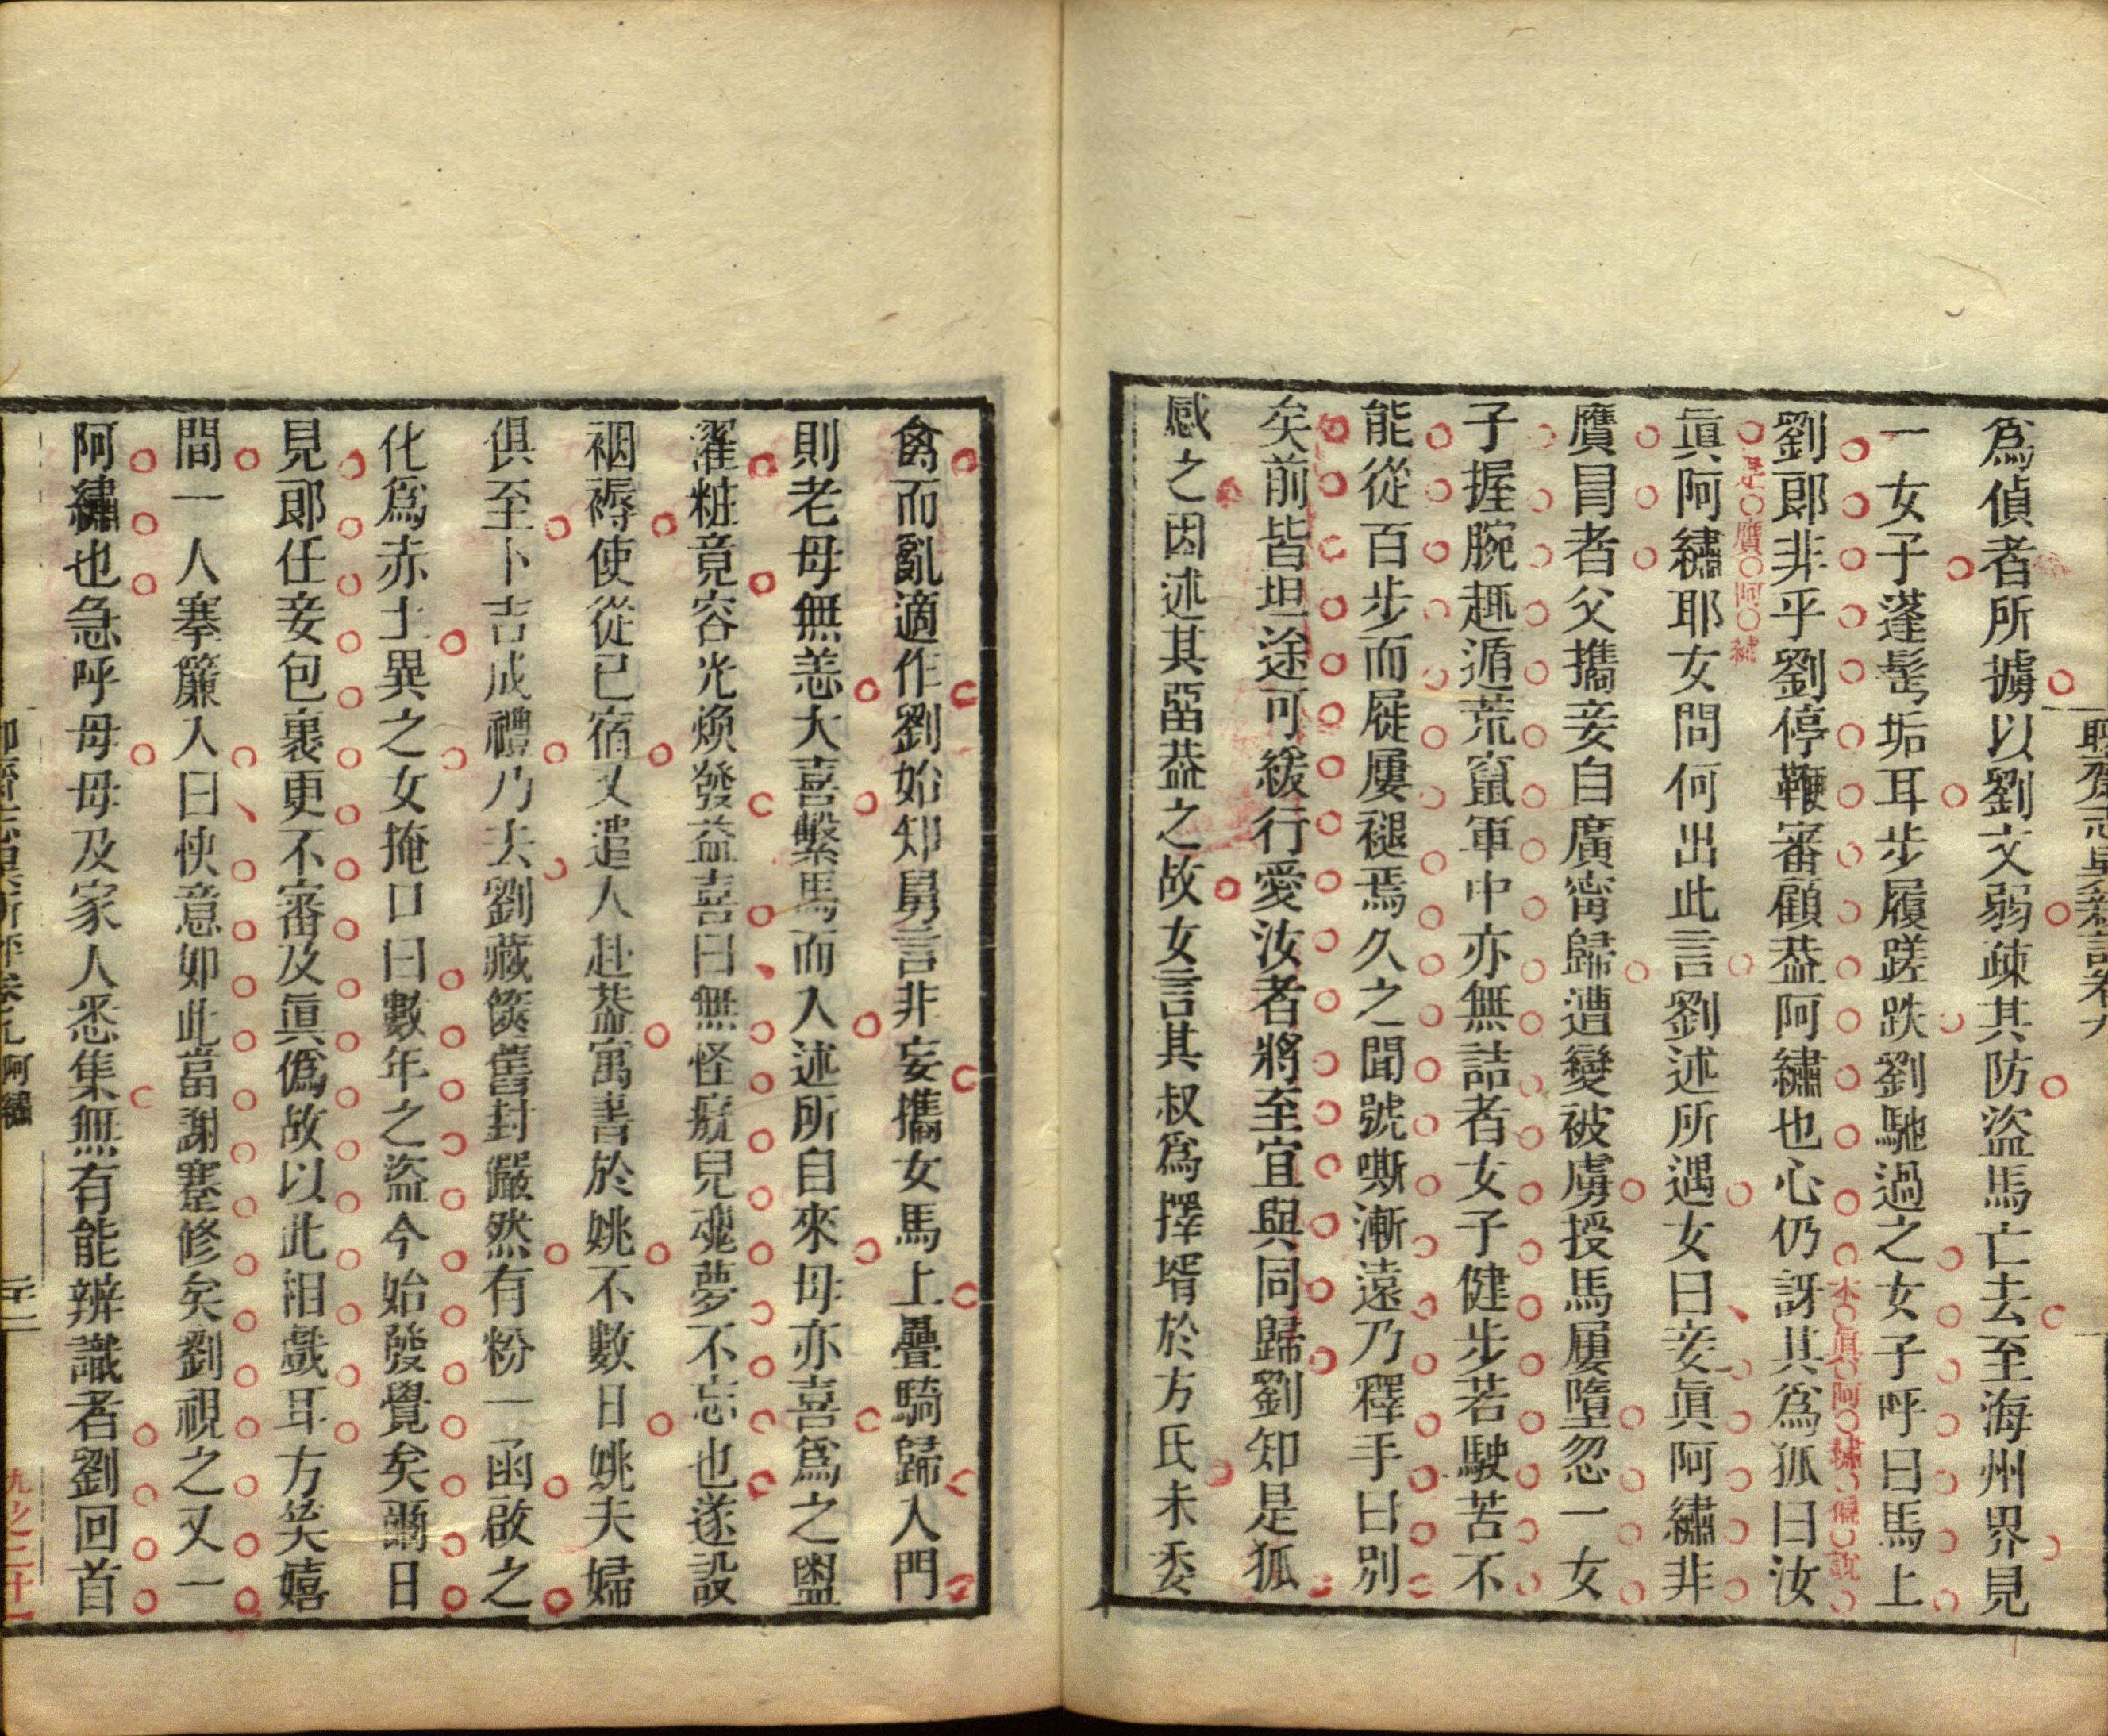 聊齋志異新評卷九
爲偵者所擄以劉文弱疎其防盜馬亡去至海州界見
一女子蓬髩垢耳步履蹉跌劉馳過之女子呼曰馬上
劉郎非乎劉停鞭審顧葢阿繡也心仍訝其爲狐曰汝
本眞阿繡僞說
眞阿繡耶女問何出此言劉述所遇女曰妾眞阿繡非
是贋阿繡
贋冒者父攜妾自廣甯歸遭變被虜授馬屢墮忽一女
子握腕趣遁荒竄軍中亦無詰者女子健步若駛苦不
能從百步而屣屢褪焉久之聞號嘶漸遠乃釋手曰別
矣前皆坦途可緩行愛汝者將至宜與同歸劉知是狐
感之因述其畱葢之故女言其叔爲擇壻於方氏未委
禽而亂適作劉始知舅言非妄攜女馬上疊騎歸入門
則老母無恙大喜繫馬而入述所自來母亦喜爲之盥
濯粧竟容光煥發益喜曰無怪癡兒魂夢不忘也遂設
裀褥使從已宿又遣人赴葢寓書於姚不數日姚夫婦
俱至卜吉成禮乃去劉藏篋舊封儼然有粉一函啟之
化爲赤土異之女掩口曰數年之盜今始發覺矣爾日
見郎任妾包裹更不審及眞僞故以此相戲耳方笑嬉
間一人搴簾入曰快意如此當謝蹇修矣劉視之又一
阿繡也急呼母母及家人悉集無有能辨識者劉回首
聊齋志異新評卷九 阿繡
九之二十一